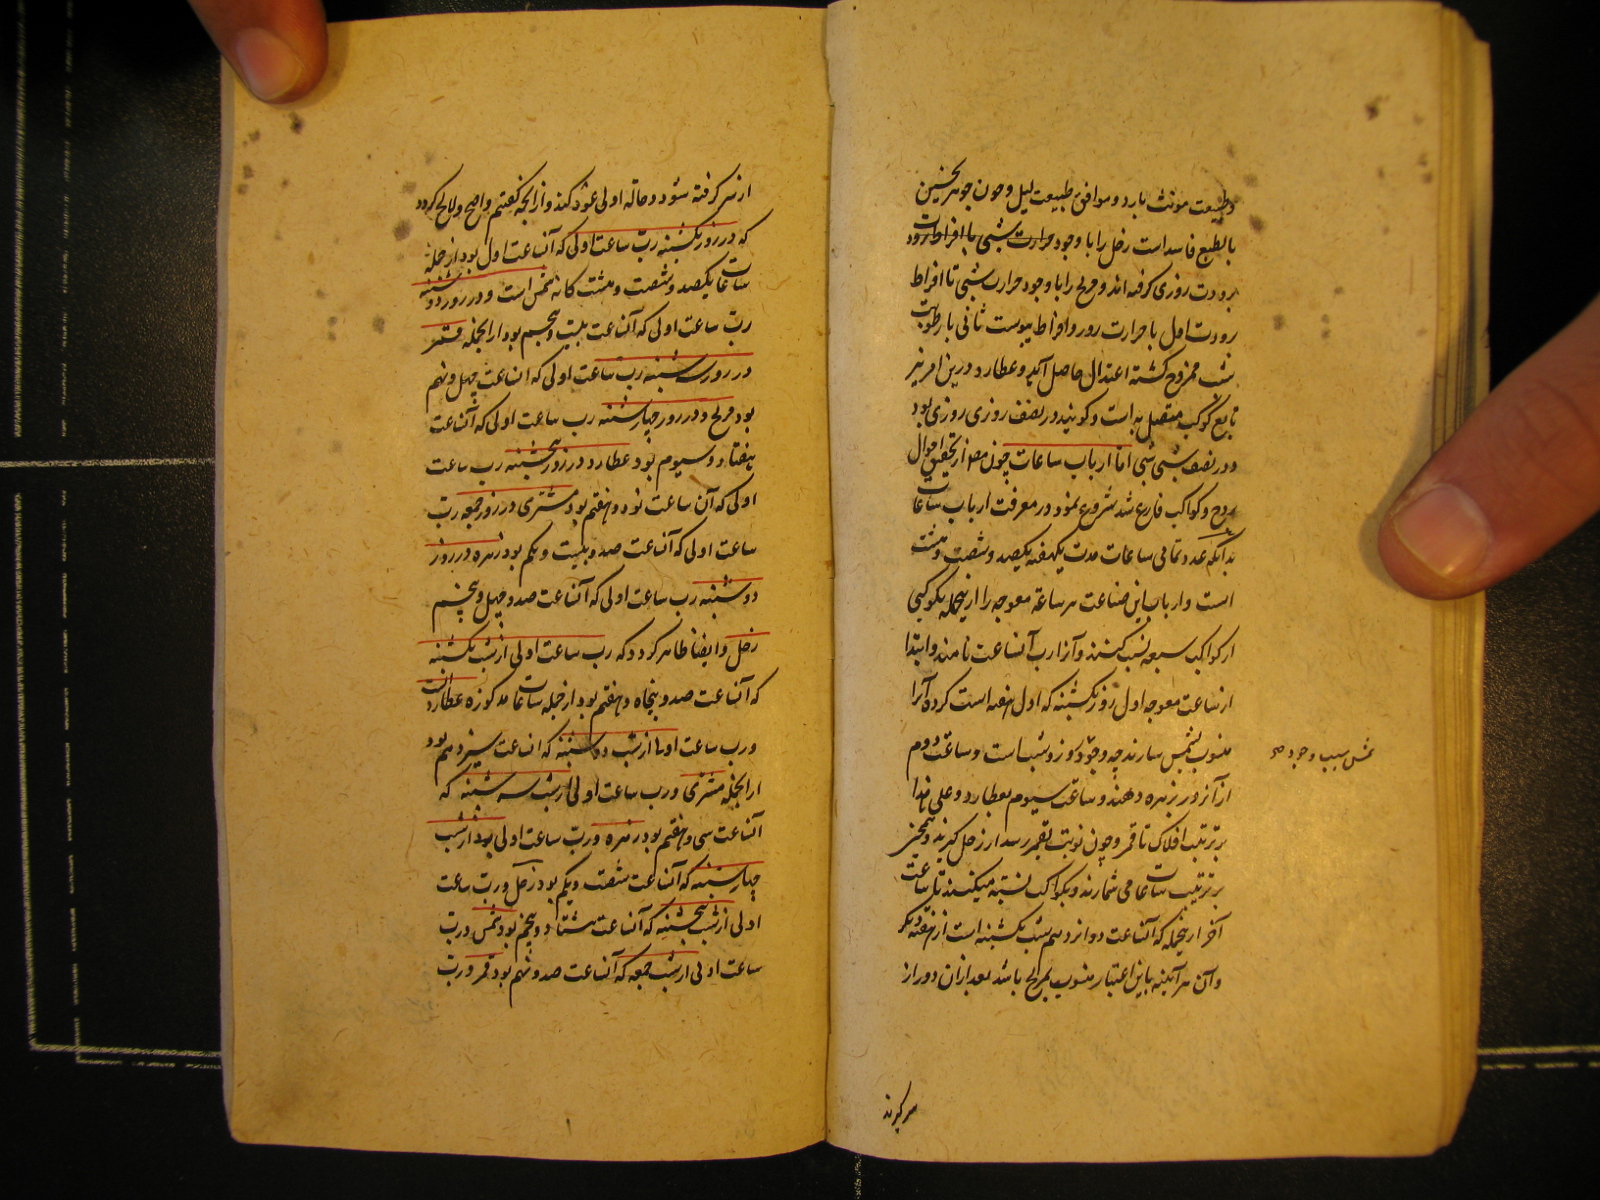 و طبیعت مونث بارد و موافق طبیعت لیل و چون جوهر نحسین
بالطبع فاسد است زحل را با وجود حرارت شبی با افراط برودت
برودت روزی گرفته اند و مریخ را با وجود حرارت شبی تا افراط
برودت اول با حرارت روز و افراط یبوست ثانی با رطوبت
شب ممزوج گشته اعتدال حاصل آید و عطارد درین امر نیز
تابع کوکب متصل به است و گویند در نصف روزی روزی بود
و در نصف شبی شبی اما ارباب ساعات چون از تحقیق احوال
بروج و کواکب فارغ شد شروع نمود در معرفت ارباب ساعات
بدانکه عدد تمامی ساعات مدت یکهفته یکصد و شصت و هشت
است و ارباب این صناعت هر ساعة معوجه را ازینجمله بکوکبی
از کواکب سبعه نسبت کنند و آنرا رب آنساعت نامند و ابتدا
از ساعت معوجه اول روز یکشنبه که اول هفته است کرده آنرا
منسوب بشمس سازند چه وجود روز و شب است و ساعت دوم
شمس سبب وجود
از آنروز بزهره دهند و ساعت سیوم بعطارد و علی هذا
بر ترتیب افلاک تا قمر و چون نوبت بقمر رسد از زحل گیرند و همچنین
بر ترتیب ساعات می شمارند و بکواکب نسبة میکنند تا ساعت
آخر ازینجمله که آنساعت دوازدهم شب یکشنبه است از هفته دیگر
و آن هر آینه باین اعتبار منسوب بمریخ باشد بعد ازان دور از
سر گیرند
از سر گرفته شود و حالة اولی عود کند و از آنچه گفتیم واضح و لایح گردد
که در روز یکشنبه رب ساعت اولی که آنساعت اول بود از جمله
ساعات یکصد و شصت و هشت کانه شمس است و در روز دوشنبه
رب ساعت اولی که آنساعت بیست و پنجم بود از انجمله قمر
در روز سه شنبه رب ساعت اولی که انساعت چهل و نهم
بود مریخ و در روز چهارشنبه رب ساعت اولی که آنساعت
هفتاد و سیوم بود عطارد در روز پنجشنبه رب ساعت
اولی که آن ساعت نود و هفتم بود مشتری در روز جمعه رب
ساعت اولی که آنساعت صد و بیست و یکم بود زهره در روز
رب ساعت اولی که آنساعت صد و چهل و پنجم
زحل و ایضا ظاهر گردد که رب ساعت اولی از شب یکشنبه
که آنساعت صد و پنجاه و هفتم بود از جمله ساعات مذکوره عطارد است
و رب ساعت اولی از شب دوشنبه که انساعت سیزدهم بود
از انجمله مشتری و رب ساعت اولی از شب سه شنبه که
آنساعت سی و هفتم بود زهره و رب ساعت اولی بود از شب
چهارشنبه که آنساعت شصت و یکم بود زحل و رب ساعت
اولی از شب پنجشنبه که آنساعت هشتاد و پنجم بود شمس و رب
ساعت اولی از شب جمعه که آنساعت صد و نهم بود قمر و رب